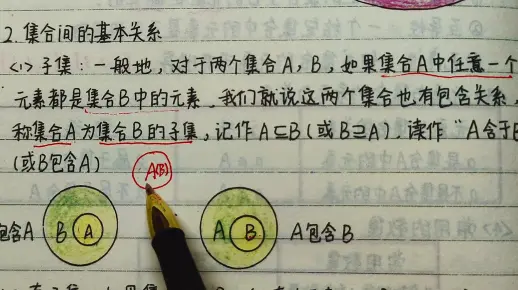 2.集合间的基本关系
<1>子集：一般地，对于两个集合A，B，如果集合A中任意一个
元素都是集合B中的元素，我们就说这两个集合也有包含关系，
称集合A为集合B的子集，记作A⊆B(或B⊇A).读作“A含于B
(或B包含A) A(B)
包含A B A A B A包含B